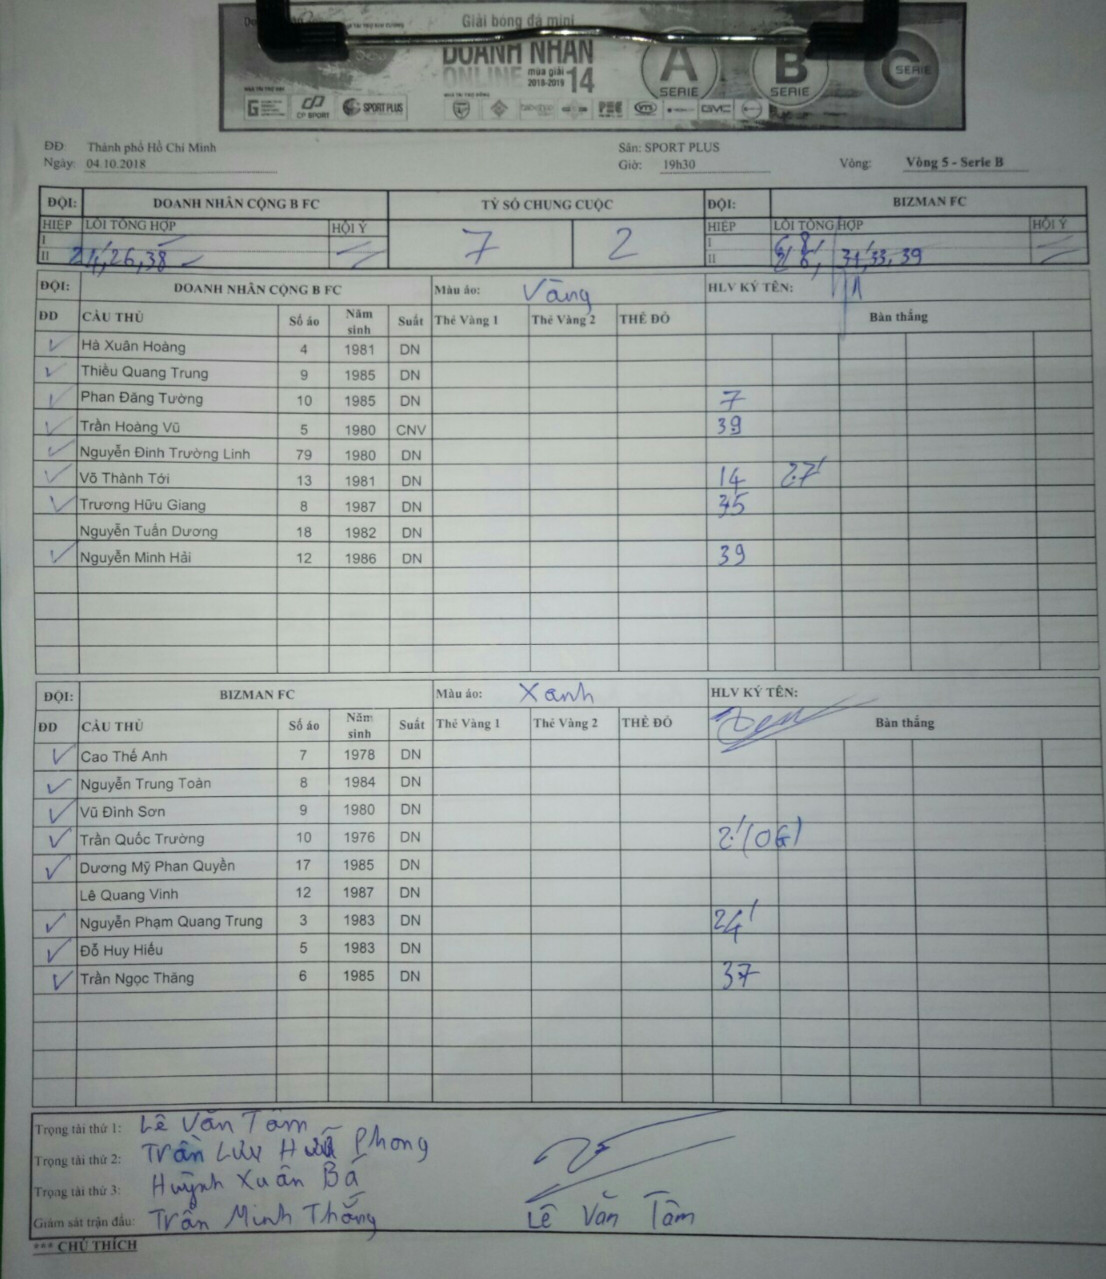 Giải bóng đá mini
DOANH NHÂN
ONLINE mùa giải 2018-2019 14
A SERIE B SERIE C SERIE
CP SPORT SPORT PLUS GVC
ĐĐ: Thành phố Hồ Chí Minh Sân: SPORT PLUS
Ngày: 04.10.2018 Giờ: 19h30 Vòng: Vòng 5 - Serie B
ĐỘI: DOANH NHÂN CỘNG B FC TỶ SỐ CHUNG CUỘC ĐỘI: BIZMAN FC
HIỆP LỖI TỔNG HỢP HỘI Ý 7 2 HIỆP LỖI TỔNG HỢP HỘI Ý
I I
II 26,38 II 33, 39
ĐỘI: DOANH NHÂN CỘNG B FC Màu áo: Vàng HLV KÝ TÊN:
ĐD CẦU THỦ Số áo Năm sinh Suất Thẻ Vàng 1 Thẻ Vàng 2 THẺ ĐỎ Bàn thắng
Hà Xuân Hoàng 4 1981 DN
Thiều Quang Trung 9 1985 DN
Phan Đăng Tường 10 1985 DN 7
Trần Hoàng Vũ 5 1980 CNV 39
Nguyễn Đình Trường Linh 79 1980 DN
Võ Thành Tới 13 1981 DN 14 27'
Trương Hữu Giang 8 1987 DN 35
Nguyễn Tuấn Dương 18 1982 DN
Nguyễn Minh Hải 12 1986 DN 39
ĐỘI: BIZMAN FC Màu áo: Xanh HLV KÝ TÊN:
ĐD CẦU THỦ Số áo Năm sinh Suất Thẻ Vàng 1 Thẻ Vàng 2 THẺ ĐỎ Bàn thắng
Cao Thế Anh 7 1978 DN
Nguyễn Trung Toàn 8 1984 DN
Vũ Đình Sơn 9 1980 DN
Trần Quốc Trường 10 1976 DN 2'(OG)
Dương Mỹ Phan Quyền 17 1985 DN
Lê Quang Vinh 12 1987 DN
Nguyễn Phạm Quang Trung 3 1983 DN 24'
Đỗ Huy Hiếu 5 1983 DN
Trần Ngọc Thăng 6 1985 DN 37
Trọng tài thứ 1: Lê Văn Tâm
Trọng tài thứ 2: Trần Lưu Hữu Phong
Trọng tài thứ 3: Huỳnh Xuân Bá
Giám sát trận đấu: Trần Minh Thắng Lê Văn Tâm
*** CHÚ THÍCH